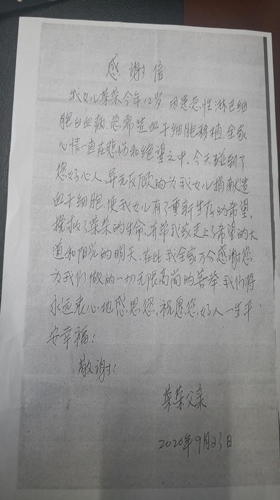 感谢信
我女儿荣荣今年12岁 因患恶性淋巴细
胞白血病 急需造血干细胞移植 全家
心情一直在悲伤和绝望之中，今天碰到了
您好心人 毫无反顾的为我女儿捐献造
血干细胞 使我女儿有了重新生存的希望，
拯救了荣荣的生命，并带我家走上了希望的大
道和阳光的明天，在此我全家万分感谢您
为我们做的一切无限高尚的善举 我们将
永远衷心地感恩您，祝愿您，好人一生平
安幸福！
敬谢！
荣荣父亲
2020年9月23日